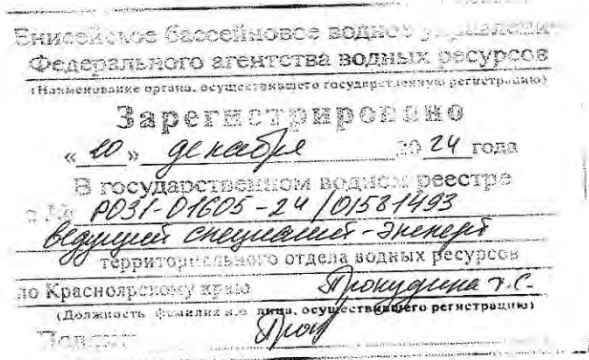 Енисейское бассейновое водное управление
Федерального агентства водных ресурсов
(Наименование органа, осуществившего государственную регистрацию)
Зарегистрировано
« 20 » декабря 2024 года
В государственном водном реестре
за № Р031-01605-24/01581493
ведущий специалист-эксперт
территориального отдела водных ресурсов
по Красноярскому краю Прокудина Т.С.
(Должность фамилия и.о. лица, осуществившего регистрацию)
Подпись